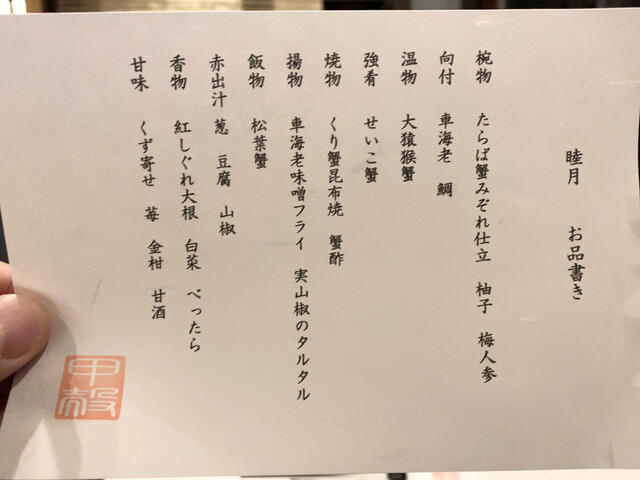 睦月　お品書き
椀物　たらば蟹みぞれ仕立　柚子　梅人参
向付　車海老　鯛
温物　大猿猴蟹
強肴　せいこ蟹
焼物　くり蟹昆布焼　蟹酢
揚物　車海老味噌フライ　実山椒のタルタル
飯物　松葉蟹
赤出汁　葱　豆腐　山椒
香物　紅しぐれ大根　白菜　べったら
甘味　くず寄せ　苺　金柑　甘酒
甲殻